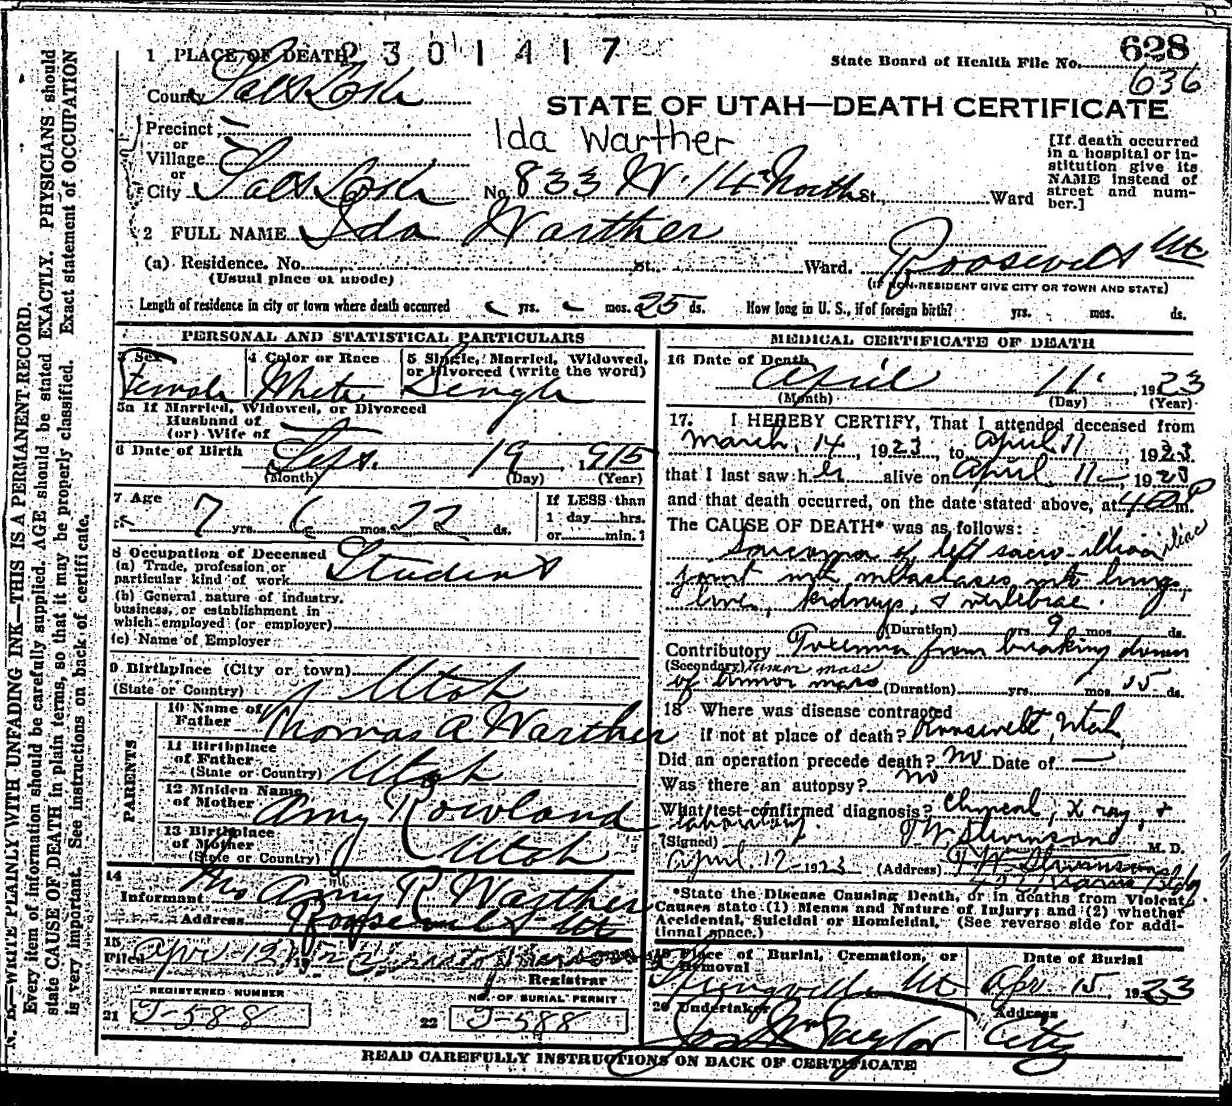 1 PLACE OF DEATH 2301417
State Board of Health File No. 628
636
County Salt Lake
STATE OF UTAH—DEATH CERTIFICATE
Precinct —
or
Village —
or
City Salt Lake No. 833 W. 14th North St., Ward
Ida Warther
[If death occurred
in a hospital or in-
stitution give its
NAME instead of
street and num-
ber.]
2 FULL NAME Ida Warther
(a) Residence. No. St., Ward. Roosevelt Ut
(Usual place of abode)
(IF NON-RESIDENT GIVE CITY OR TOWN AND STATE)
Length of residence in city or town where death occurred — yrs. — mos. 25 ds. How long in U. S., if of foreign birth? yrs. mos. ds.
PERSONAL AND STATISTICAL PARTICULARS
3 Sex 4 Color or Race 5 Single, Married, Widowed,
or Divorced (write the word)
Female White Single
5a If Married, Widowed, or Divorced
Husband of
(or) Wife of —
6 Date of Birth Sept. 19, 1915
(Month) (Day) (Year)
7 Age 7 yrs. 6 mos. 22 ds.
If LESS than
1 day hrs.
or min.?
8 Occupation of Deceased
(a) Trade, profession or
particular kind of work Student
(b) General nature of industry,
business, or establishment in
which employed (or employer)
(c) Name of Employer
9 Birthplace (City or town)
(State or Country) Utah
PARENTS
10 Name of
Father Thomas A Warther
11 Birthplace
of Father
(State or Country) Utah
12 Maiden Name
of Mother Amy Rowland
13 Birthplace
of Mother
(State or Country) Utah
14
Informant Mrs Amy R Warther
Address Roosevelt Ut
15
Filed Apr 12
Registrar
REGISTERED NUMBER
21 J-588
NO. OF BURIAL PERMIT
22 J-588
MEDICAL CERTIFICATE OF DEATH
16 Date of Death
April 11, 1923
(Month) (Day) (Year)
17. I HEREBY CERTIFY, That I attended deceased from
March 14, 1923, to April 11, 1923
that I last saw her alive on April 11, 1923
and that death occurred, on the date stated above, at P m.
The CAUSE OF DEATH* was as follows:
Sarcoma of left sacro-iliac
joint with metastases into lungs,
liver, kidneys, & vertebrae.
(Duration) yrs. 9 mos. ds.
Contributory Toxemia from breaking down
(Secondary) tumor mass
of tumor mass (Duration) yrs. mos. 15 ds.
18 Where was disease contracted
if not at place of death? Roosevelt, Utah
Did an operation precede death? no Date of —
Was there an autopsy? no
What test confirmed diagnosis? Clinical, X ray, &
laboratory.
(Signed) M. D.
April 12-1923 (Address)
*State the Disease Causing Death, or in deaths from Violent
Causes state (1) Means and Nature of Injury; and (2) whether
Accidental, Suicidal or Homicidal. (See reverse side for addi-
tional space.)
19 Place of Burial, Cremation, or
Removal
Springville Ut
Date of Burial
Apr 15, 1923
20 Undertaker
Jos Wm Taylor
Address
City
READ CAREFULLY INSTRUCTIONS ON BACK OF CERTIFICATE
N. B.—WRITE PLAINLY WITH UNFADING INK—THIS IS A PERMANENT RECORD.
Every item of information should be carefully supplied. AGE should be stated EXACTLY. PHYSICIANS should
state CAUSE OF DEATH in plain terms, so that it may be properly classified. Exact statement of OCCUPATION
is very important. See instructions on back of certificate.